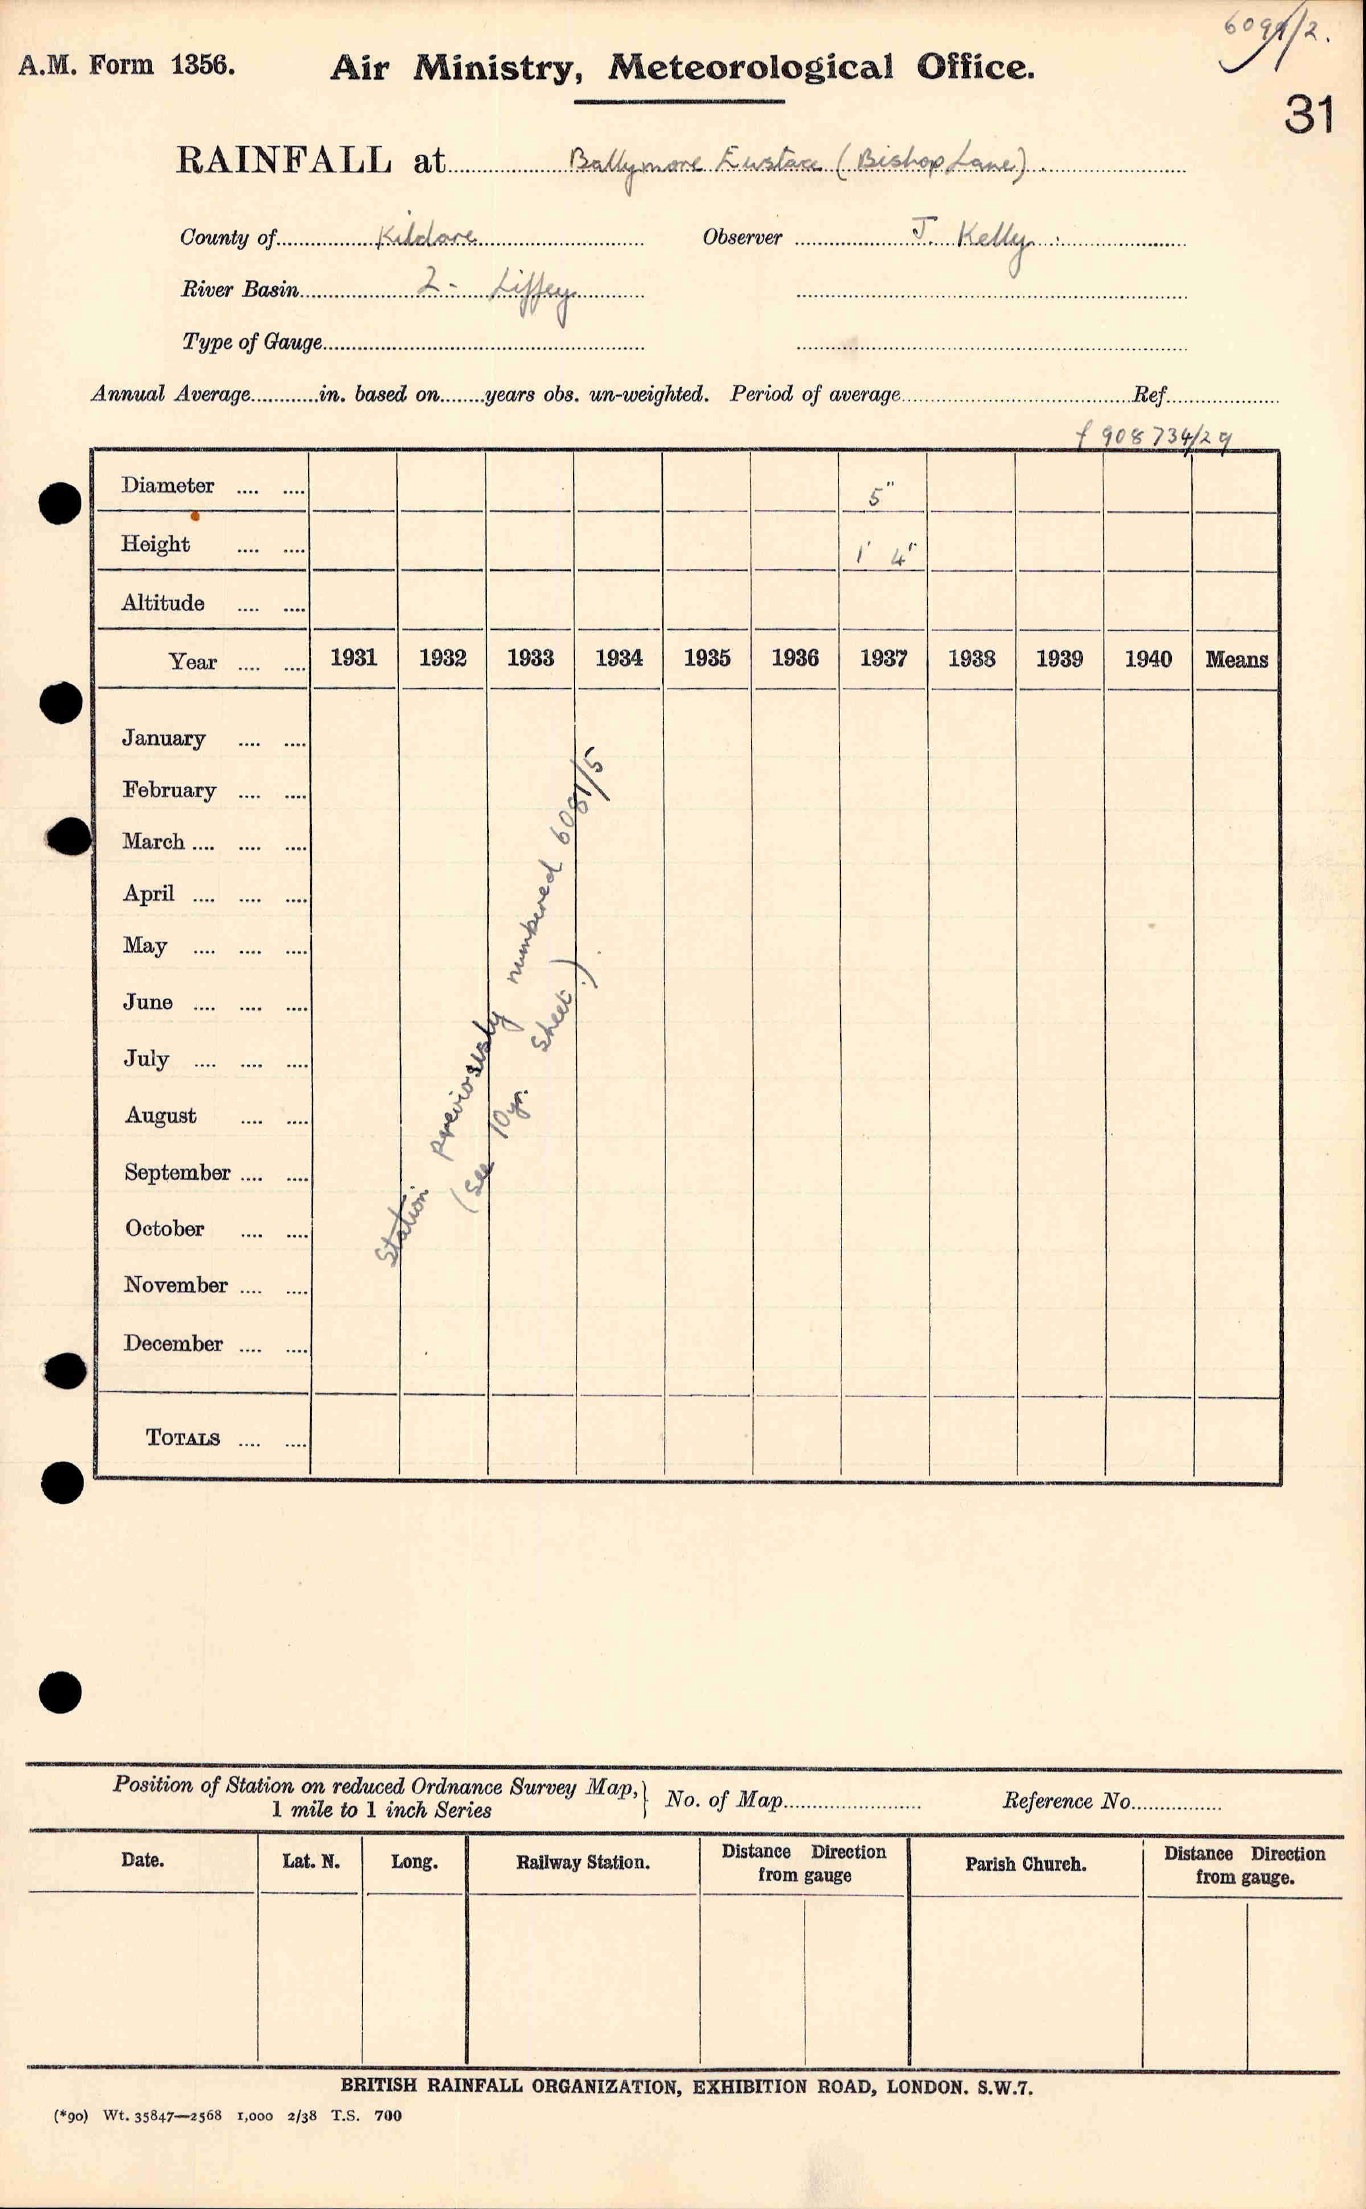 6091/2.
A.M. Form 1356. Air Ministry, Meteorological Office.
31
RAINFALL at Ballymore Eustace (Bishop Lane)
County of Kildare Observer J. Kelly
River Basin 2 - Liffey
Type of Gauge
Annual Average in. based on years obs. un-weighted. Period of average Ref.
f 908 734/29
Diameter 5"
Height 1' 4"
Altitude
Year 1931 1932 1933 1934 1935 1936 1937 1938 1939 1940 Means
January
February
March
April
May
June
July
August
September
October
November
December
Station previously numbered 6081/5
(see 10 yr. sheet.)
TOTALS
Position of Station on reduced Ordnance Survey Map,} No. of Map Reference No.
1 mile to 1 inch Series
Date. Lat. N. Long. Railway Station. Distance Direction from gauge Parish Church. Distance Direction from gauge.
BRITISH RAINFALL ORGANIZATION, EXHIBITION ROAD, LONDON. S.W.7.
(*90) Wt. 35847—2568 1,000 2/38 T.S. 700